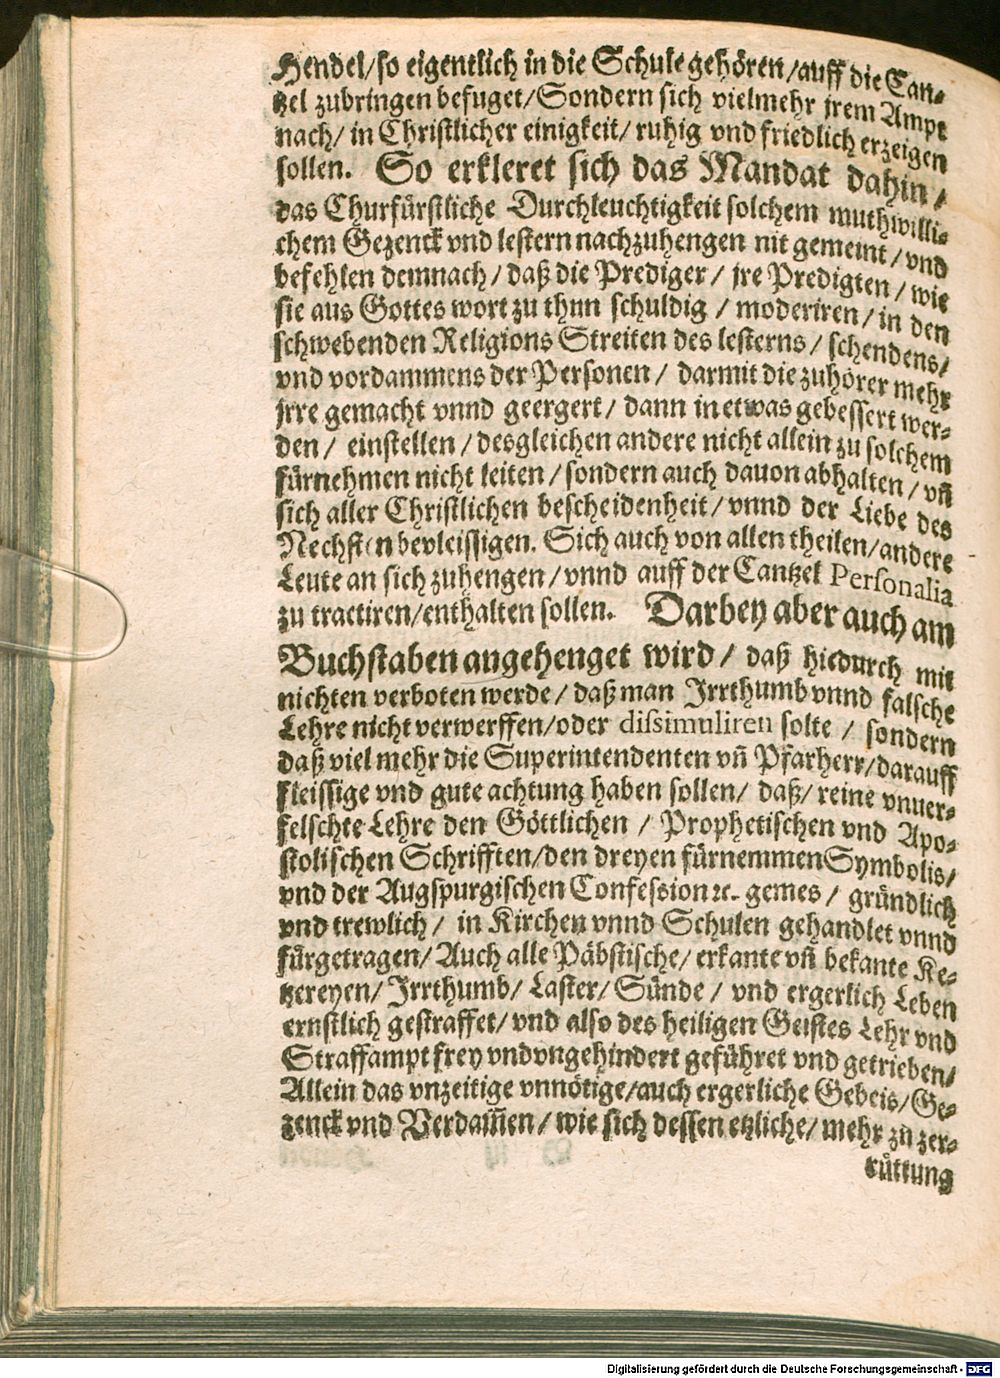 Hendel/so eigentlich in die Schule gehören/auff die Can-
tzel zubringen befuget/Sondern sich vielmehr jrem Ampt
nach/ in Christlicher einigkeit/ ruhig vnd friedlich erzeigen
sollen. So erkleret sich das Mandat dahin/
das Churfürstliche Durchleuchtigkeit solchem muthwilli-
chem Gezenck vnd lestern nachzuhengen nit gemeint/vnd
befehlen demnach/ daß die Prediger/ jre Predigten/ wie
sie aus Gottes wort zu thun schuldig / moderiren/ in den
schwebenden Religions Streiten des lesterns/ schendens/
vnd vordammens der Personen/ darmit die zuhörer mehr
jrre gemacht vnnd geergert/ dann in etwas gebessert wer-
den/ einstellen/desgleichen andere nicht allein zu solchem
fürnehmen nicht leiten/sondern auch dauon abhalten/ vñ
sich aller Christlichen bescheidenheit/ vnnd der Liebe des
Nechsten bevleissigen. Sich auch von allen theilen/andere
Leute an sich zuhengen/vnnd auff der Cantzel Personalia
zu tractiren/enthalten sollen. Darbey aber auch am
Buchstaben angehenget wird/ daß hiedurch mit
nichten verboten werde/ daß man Irrthumb vnnd falsche
Lehre nicht verwerffen/oder dissimuliren solte / sondern
daß viel mehr die Superintendenten vñ Pfarherr/darauff
fleissige vnd gute achtung haben sollen/ daß/ reine vnuer-
felschte Lehre den Göttlichen / Prophetischen vnd Apo-
stolischen Schrifften/den dreyen fürnemmen Symbolis/
vnd der Augspurgischen Confession ꝛc. gemes / gründlich
vnd trewlich/ in Kirchen vnnd Schulen gehandlet vnnd
fürgetragen/ Auch alle Päbstische/ erkante vñ bekante Ke-
tzereyen/ Irrthumb/ Laster/ Sünde / vnd ergerlich Leben
ernstlich gestraffet/ vnd also des heiligen Geistes Lehr vnd
Straffampt frey vnd vngehindert geführet vnd getrieben/
Allein das vnzeitige vnnötige/auch ergerliche Gebeis/ Ge-
zenck vnd Verdam̃en/ wie sich dessen etzliche/ mehr zu zer-
rüttung
Digitalisierung gefördert durch die Deutsche Forschungsgemeinschaft - DFG